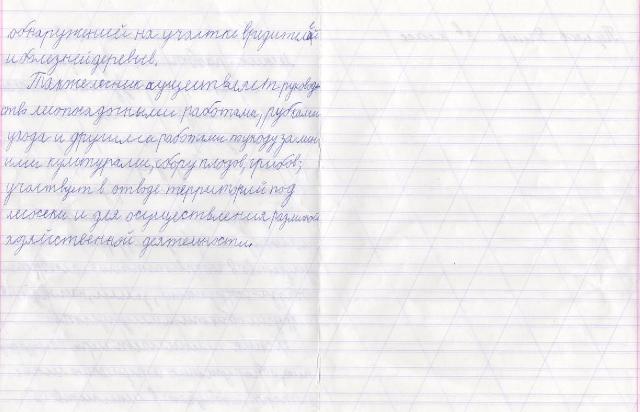 обнаружений на участке вредителей
и болезней деревьев.
Также лесник осуществляет руковод-
ство лесопосадочными работами, рубками
ухода и другими работами по уходу за лес-
ными культурами, сбору плодов, грибов;
участвует в отводе территорий под
лесосеки и для осуществления различной
хозяйственной деятельности.